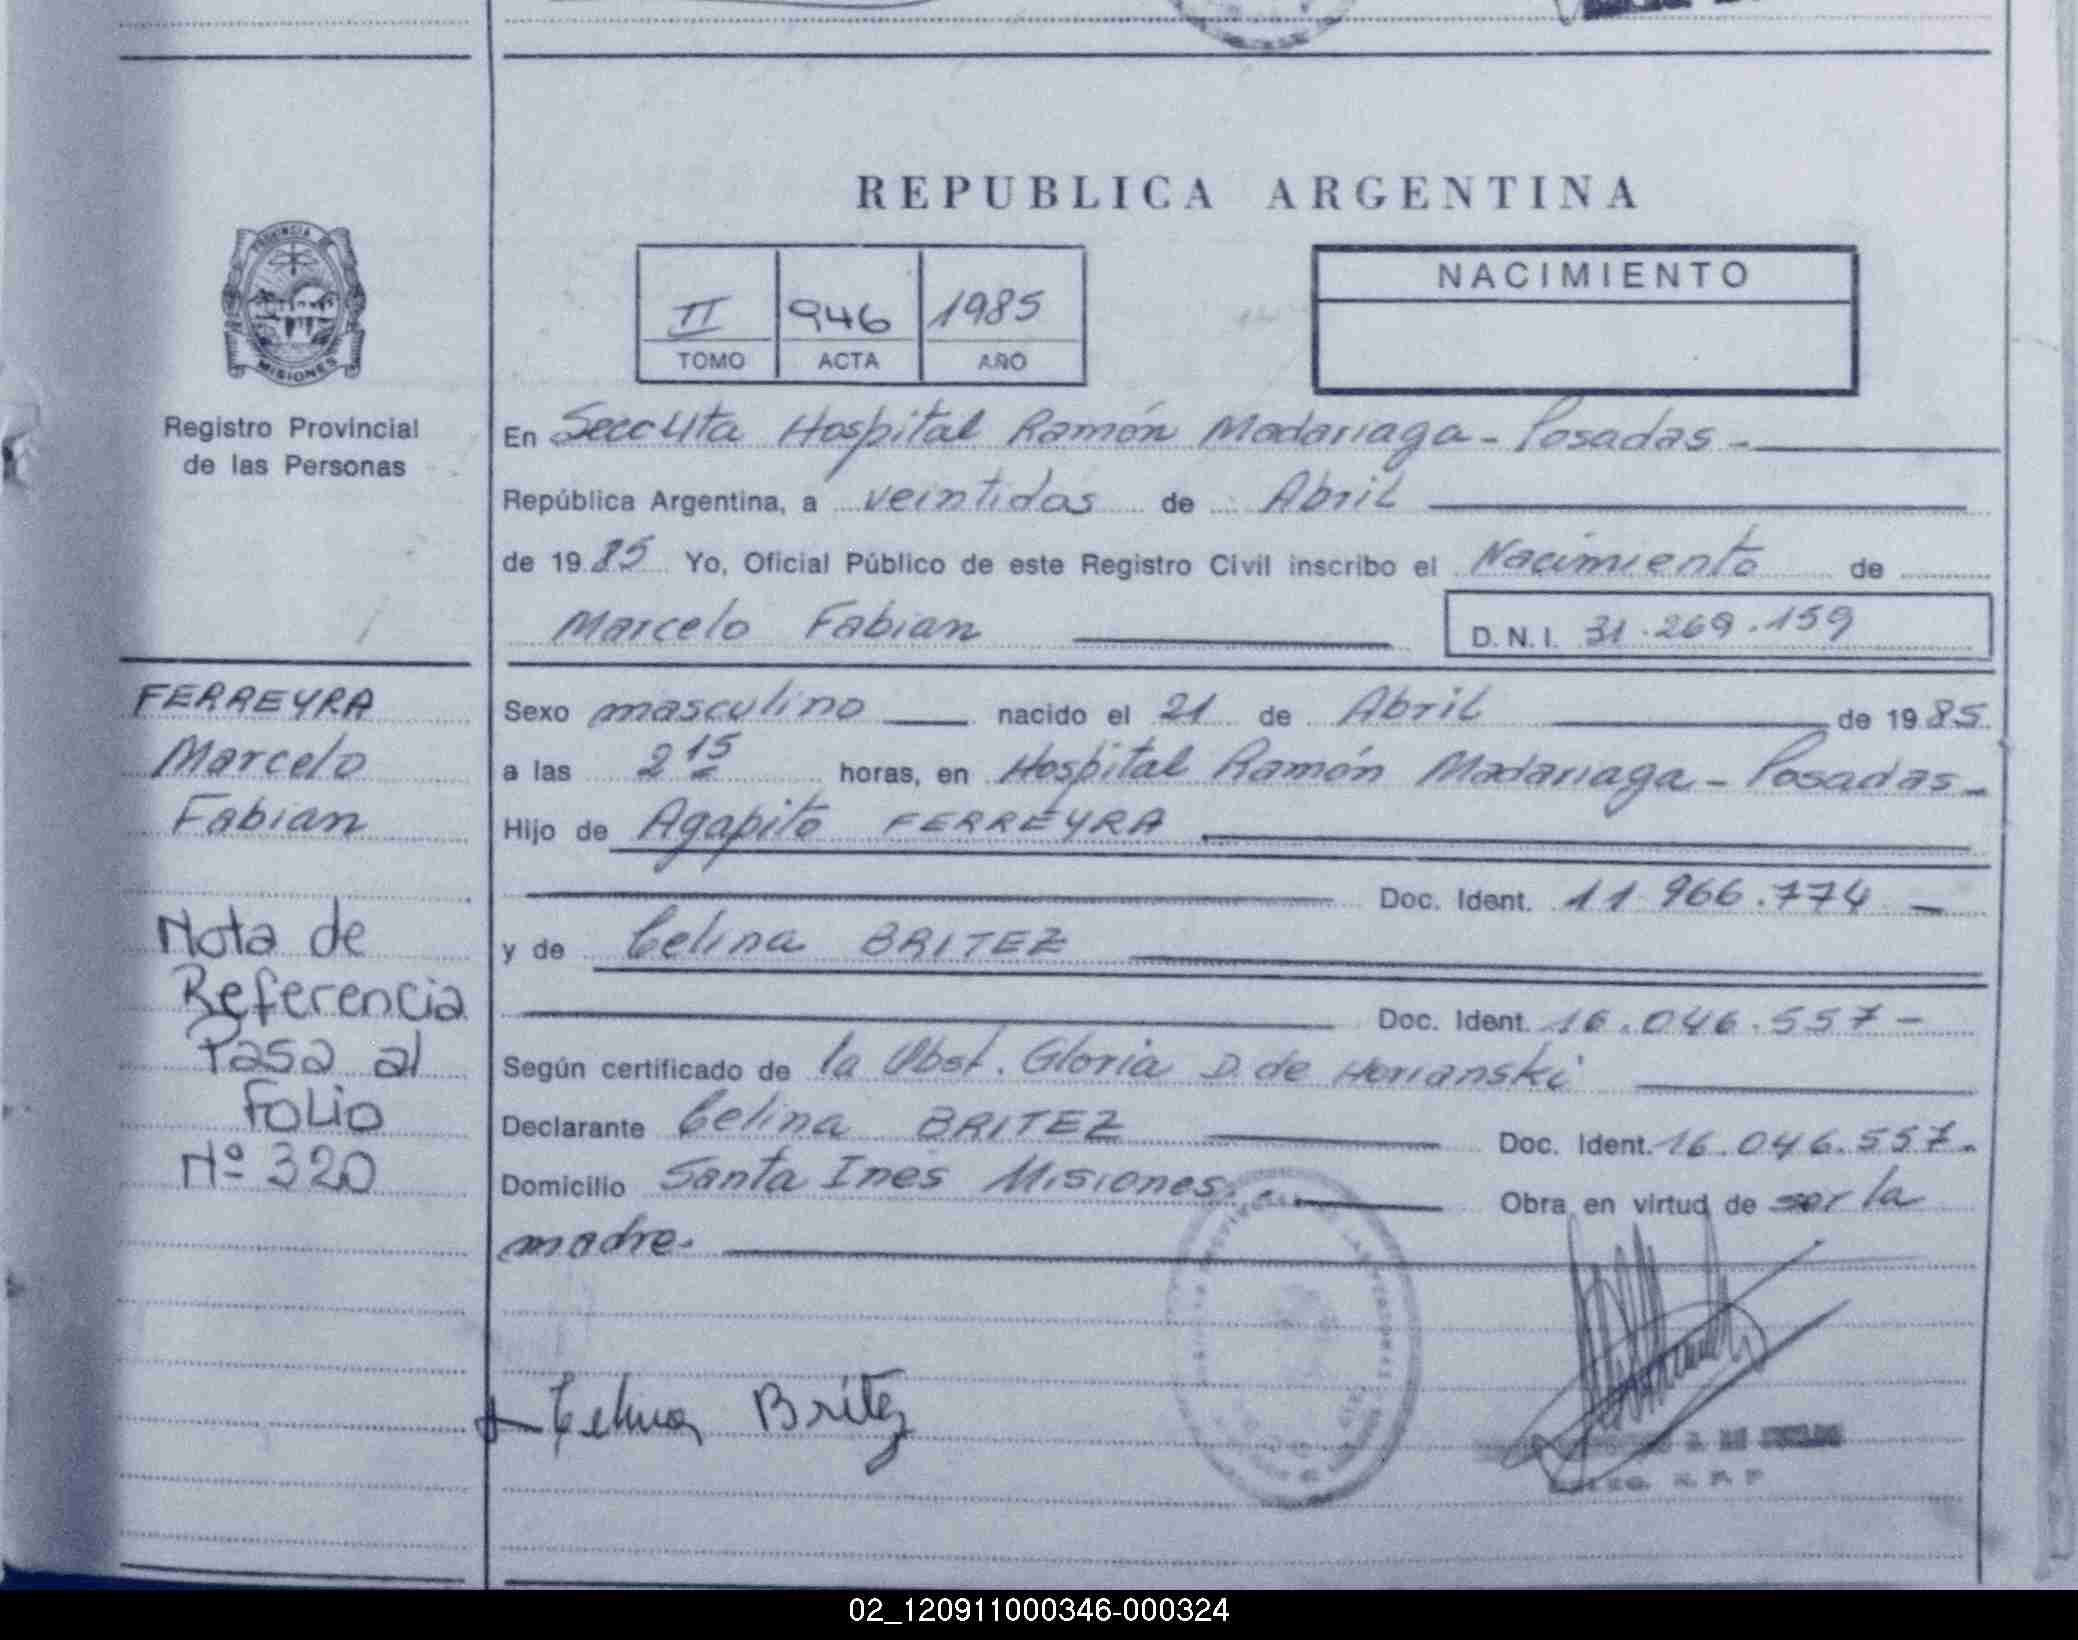 REPUBLICA ARGENTINA
PROVINCIA DE
MISIONES
Registro Provincial
de las Personas
II 946 1985
TOMO ACTA AÑO
NACIMIENTO
En Secc 4ta Hospital Ramón Madariaga - Posadas -
República Argentina, a veintidos de Abril
de 1985 Yo, Oficial Público de este Registro Civil inscribo el Nacimiento de
Marcelo Fabian D.N.I. 31.269.159
FERREYRA
Marcelo
Fabian
Nota de
Referencia
Pasa al
Folio
Nº 320
Sexo masculino nacido el 21 de Abril de 1985.
a las 2 15 horas, en Hospital Ramón Madariaga - Posadas -
Hijo de Agapito FERREYRA
Doc. Ident. 11.966.774 -
y de Celina BRITEZ
Doc. Ident. 16.046.557 -
Según certificado de la Obst. Gloria D. de
Declarante Celina BRITEZ Doc. Ident. 16.046.557.
Domicilio Santa Ines Misiones. Obra en virtud de ser la
madre.
Celina Britez
02_120911000346-000324